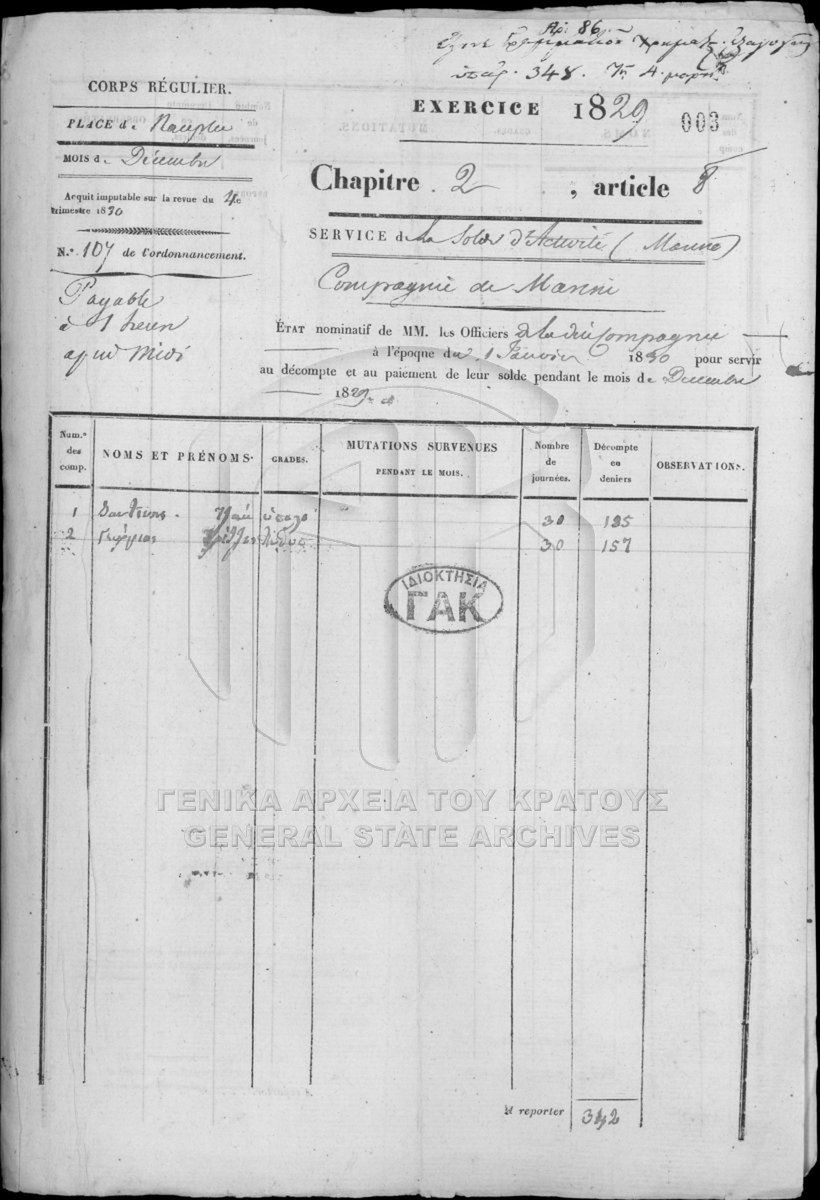 Αρ. 86.
υπάρ. 348. 7η 4.
CORPS RÉGULIER.
EXERCICE 1829
003
PLACE de Nauplie
MOIS de Décembre
Chapitre 2, article 8
Acquit imputable sur la revue du 4e
trimestre 1830
SERVICE de la Solde d'Activité (Marine)
N.º 107 de l'ordonnancement.
Compagnie de Marine
Payable
à
midi
ÉTAT nominatif de MM. les Officiers de la dite Compagnie
à l'époque du 1 Janvier 1830 pour servir
au décompte et au paiement de leur solde pendant le mois de Décembre
1829
Num.º des comp.
NOMS ET PRÉNOMS.
GRADES.
MUTATIONS SURVENUES PENDANT LE MOIS.
Nombre de journées.
Décompte en deniers
OBSERVATIONS.
1 30 185
2 Γεώργιος 30 157
ΙΔΙΟΚΤΗΣΙΑ
ΓΑΚ
ΓΕΝΙΚΑ ΑΡΧΕΙΑ ΤΟΥ ΚΡΑΤΟΥΣ
GENERAL STATE ARCHIVES
A reporter 342